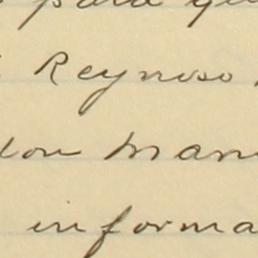 para que
Reynoso
don Man
informa